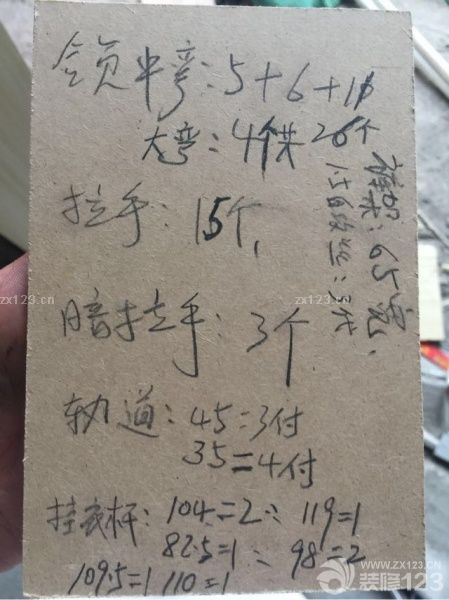 中弯:5+6+11
大弯:4个共26个
拉手:15个,
暗拉手:3个
轨道:45=3付
35=4付
挂衣杆:104=2:119=1
82.5=1:98=2
109.5=1 110=1
裤架:65宽,
1.5自攻丝:
zx123.cn
zx123.cn
WWW.ZX123.CN
装修123